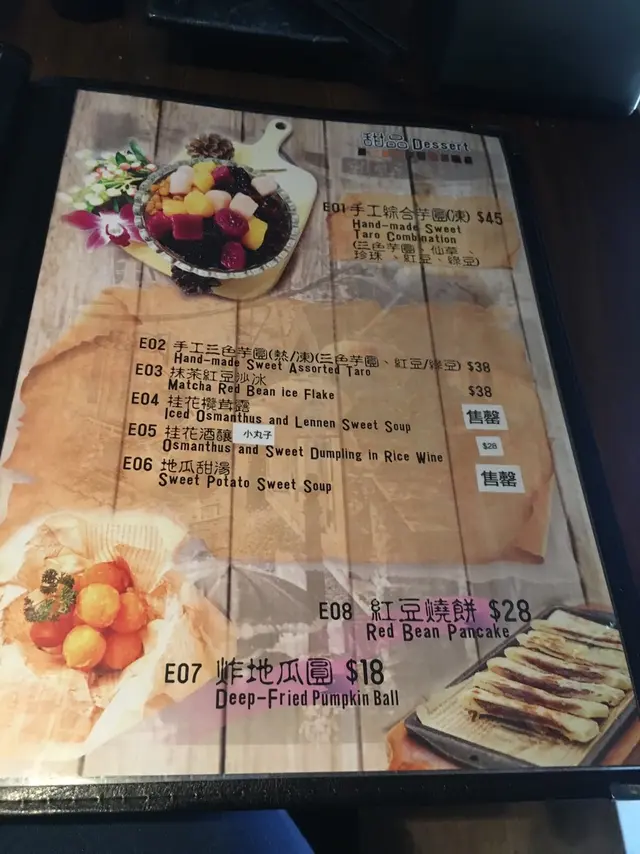 甜品 Dessert
E01 手工綜合芋圓(凍) $45
Hand-made Sweet
Taro Combination
(三色芋圓、仙草、
珍珠、紅豆、綠豆)
E02 手工三色芋圓(熱/凍)(三色芋圓、紅豆/綠豆) $38
Hand-made Sweet Assorted Taro
E03 抹茶紅豆沙冰 $38
Matcha Red Bean ice Flake
E04 桂花欖茸露 售罄
Iced Osmanthus and Lennen Sweet Soup
E05 桂花酒釀小丸子 $28
Osmanthus and Sweet Dumpling in Rice Wine
E06 地瓜甜湯 售罄
Sweet Potato Sweet Soup
E08 紅豆燒餅 $28
Red Bean Pancake
E07 炸地瓜圓 $18
Deep-Fried Pumpkin Ball